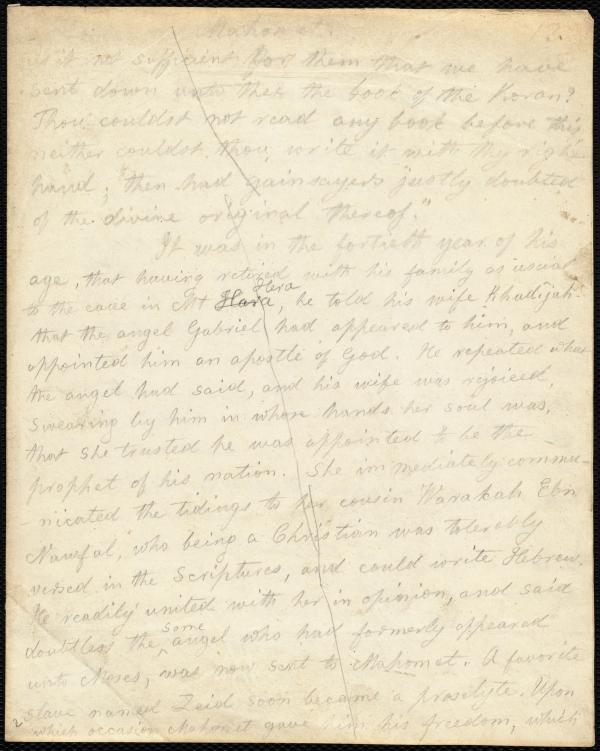 Mahomet.
is it not sufficient for them that we have
sent down unto thee the book of the Koran?
Thou couldst not read any book before this
neither couldst thou write it with thy right
hand; then had gainsayers justly doubted
of the divine original thereof."
It was in the fortieth year of his
age, that having retired with his family as usual
to the cave in Mt Hara Hera, he told his wife Khadijah
that the angel Gabriel had appeared to him, and
appointed him an apostle of God. He repeated what
the angel had said, and his wife was rejoiced,
swearing by him in whose hands her soul was,
that she trusted he was appointed to be the
prophet of his nation. She immediately commu-
-nicated the tidings to her cousin Warakah Ebn
Nawfal, who being a Christian was tolerably
versed in the Scriptures, and could write Hebrew.
He readily united with her in opinion, and said
doubtless the some angel who had formerly appeared
unto Moses, was now sent to Mahomet. A favorite
slave named Zeid soon became a proselyte. Upon
which occasion Mahomet gave him his freedom, which
2